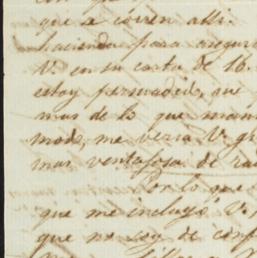 que a corren alli.
hacienda para asegur
V. en su carta de 16.
estoy persuadido, que
mas de lo que man
modo, me veria V. gr
mas ventajosa de
Por lo que
que me incluyó V.
que no soy de conf